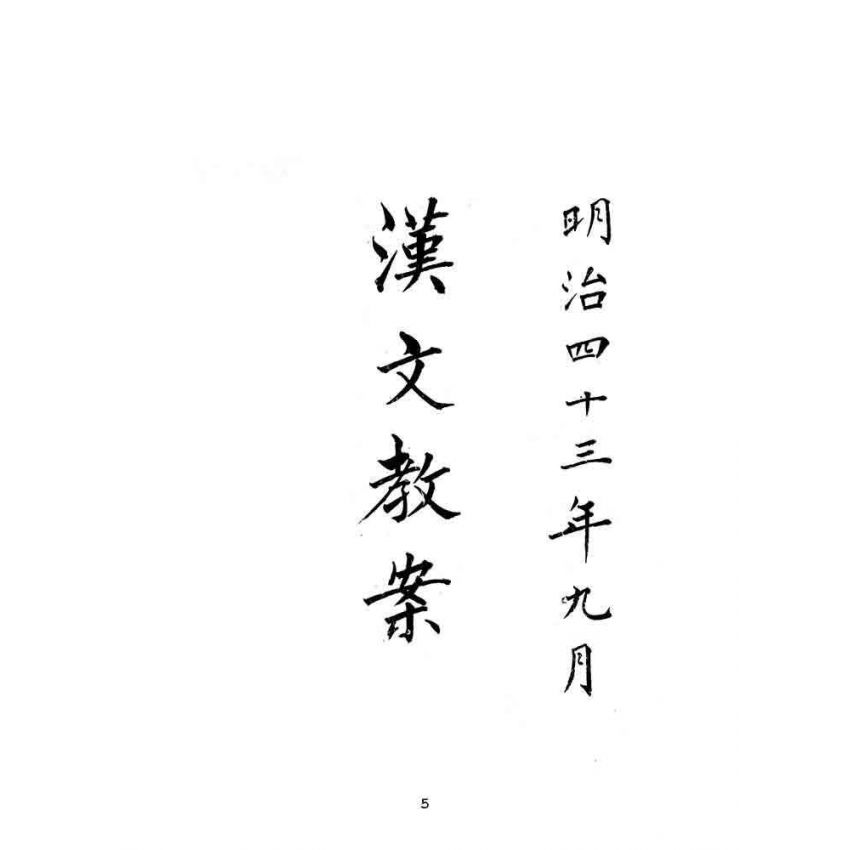 明治四十三年九月
漢文教案
5